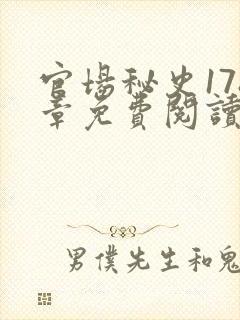 官場秘史17
章免費閱讀
男僕先生和鬼